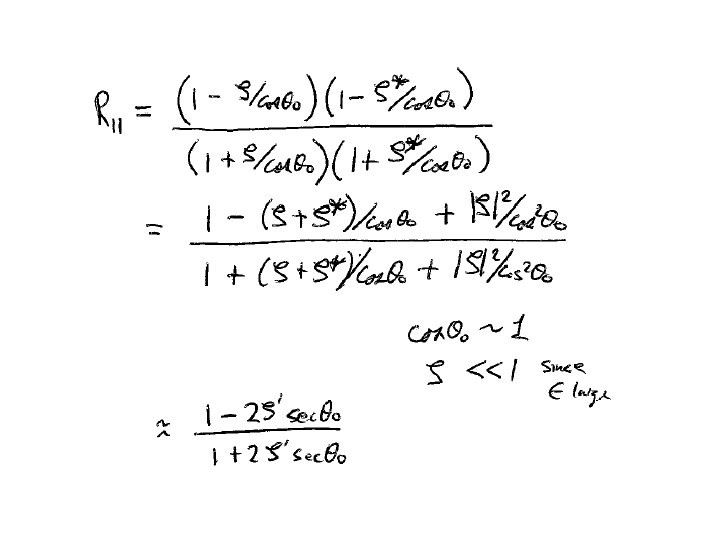 R₁₁ = (1 - ζ/cosθ₀)(1 - ζ*/cosθ₀)
(1 + ζ/cosθ₀)(1 + ζ*/cosθ₀)
= 1 - (ζ + ζ*)/cosθ₀ + |ζ|²/cos²θ₀
1 + (ζ + ζ*)/cosθ₀ + |ζ|²/cos²θ₀
cosθ₀ ~ 1
ζ << 1 since
ϵ large
≈ 1 - 2ζ' secθ₀
1 + 2ζ' secθ₀